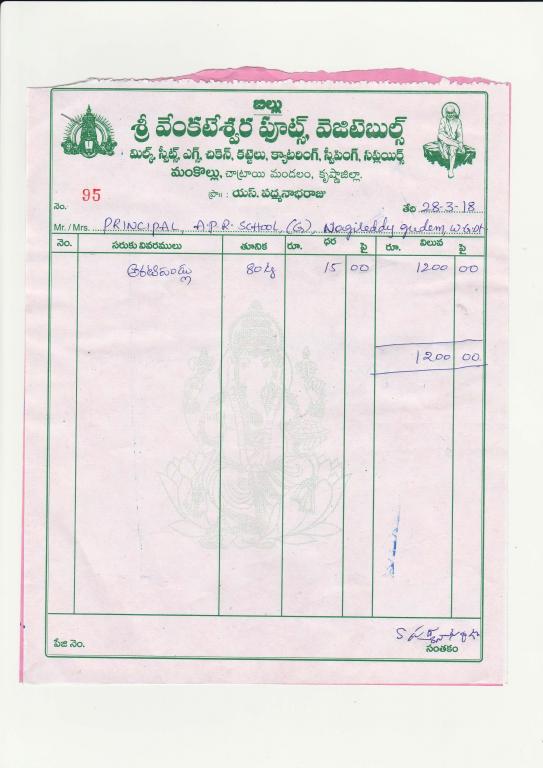 బిల్లు
శ్రీ వేంకటేశ్వర ఫ్రూట్స్, వెజిటెబుల్స్
మిల్క్, స్వీట్స్, ఎగ్స్, చికెన్, కట్టెలు, క్యాటరింగ్, స్వీపింగ్, సప్లయర్స్
మంకొల్లు, చాట్రాయి మండలం, కృష్ణాజిల్లా.
ప్రొ॥ : యస్. పద్మనాభరాజు
నెం. 95 తేది 28-3-18
Mr. / Mrs. PRINCIPAL, A.P.R. SCHOOL, (G), Nagireddy gudem, W.G.Dt
నెం. సరుకు వివరములు తూనిక రూ. ధర పై రూ. విలువ పై
అరటిపండ్లు 80 kg 15 00 1200 00
1200 00
పేజి నెం. S పద్మనాభరాజు
సంతకం